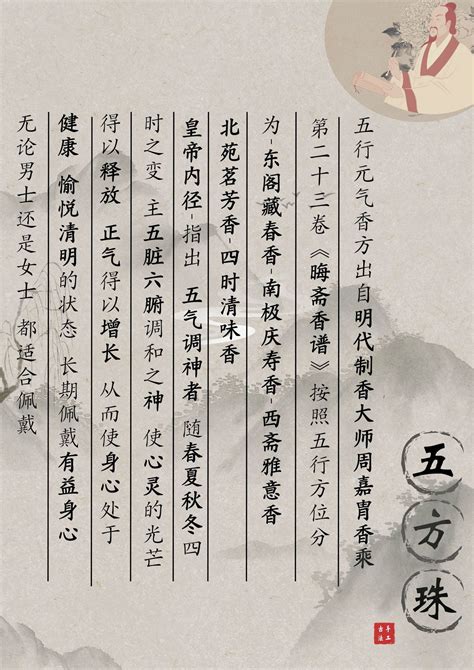 五方珠
五行元气香方出自明代制香大师周嘉胄香乘
第二十三卷《晦斋香谱》按照五行方位分
为-东阁藏春香-南极庆寿香-西斋雅意香
北苑茗芳香-四时清味香
皇帝内径-指出 五气调神者 随春夏秋冬四
时之变 主五脏六腑调和之神 使心灵的光芒
得以释放 正气得以增长 从而使身心处于
健康 愉悦清明的状态 长期佩戴有益身心
无论男士还是女士 都适合佩戴
手工
古法